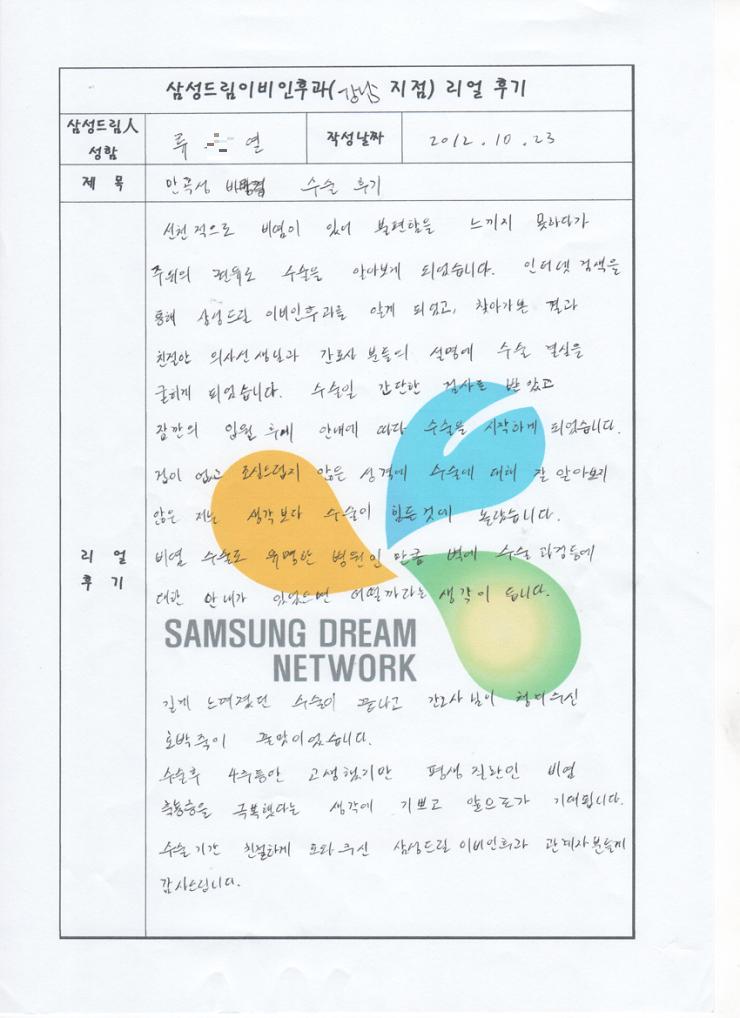 삼성드림이비인후과(강남 지점) 리얼 후기
삼성드림人 성함
류 열
작성날짜
2012.10.23
제 목
만곡성 수술 후기
리 얼 후 기
선천적으로 비염이 있어 불편함을 느끼지 못하다가
주위의 권유로 수술을 알아보게 되었습니다. 인터넷 검색을
통해 삼성드림 이비인후과를 알게 되었고, 찾아가본 결과
친절한 의사선생님과 간호사 분들의 설명에 수술 결심을
굳히게 되었습니다. 수술일 간단한 검사를 받았고
잠깐의 입원 후에 안내에 따라 수술을 시작하게 되었습니다.
겁이 없고 조심스럽지 않은 성격에 수술에 대해 잘 알아보지
않은 저는 생각보다 수술이 힘든것에 놀랐습니다.
비염 수술로 유명한 병원인 만큼 벽에 수술 과정등에
대한 안내가 있었으면 어떨까라는 생각이 듭니다.
SAMSUNG DREAM
NETWORK
길게 느껴졌던 수술이 끝나고 간호사님이 주신
호박죽이 꿀맛이었습니다.
수술후 4주동안 고생했지만 평생 질환인 비염
축농증을 극복했다는 생각에 기쁘고 앞으로가 기대됩니다.
수술기간 친절하게 주신 삼성드림 이비인후과 관계자분들께
감사드립니다.